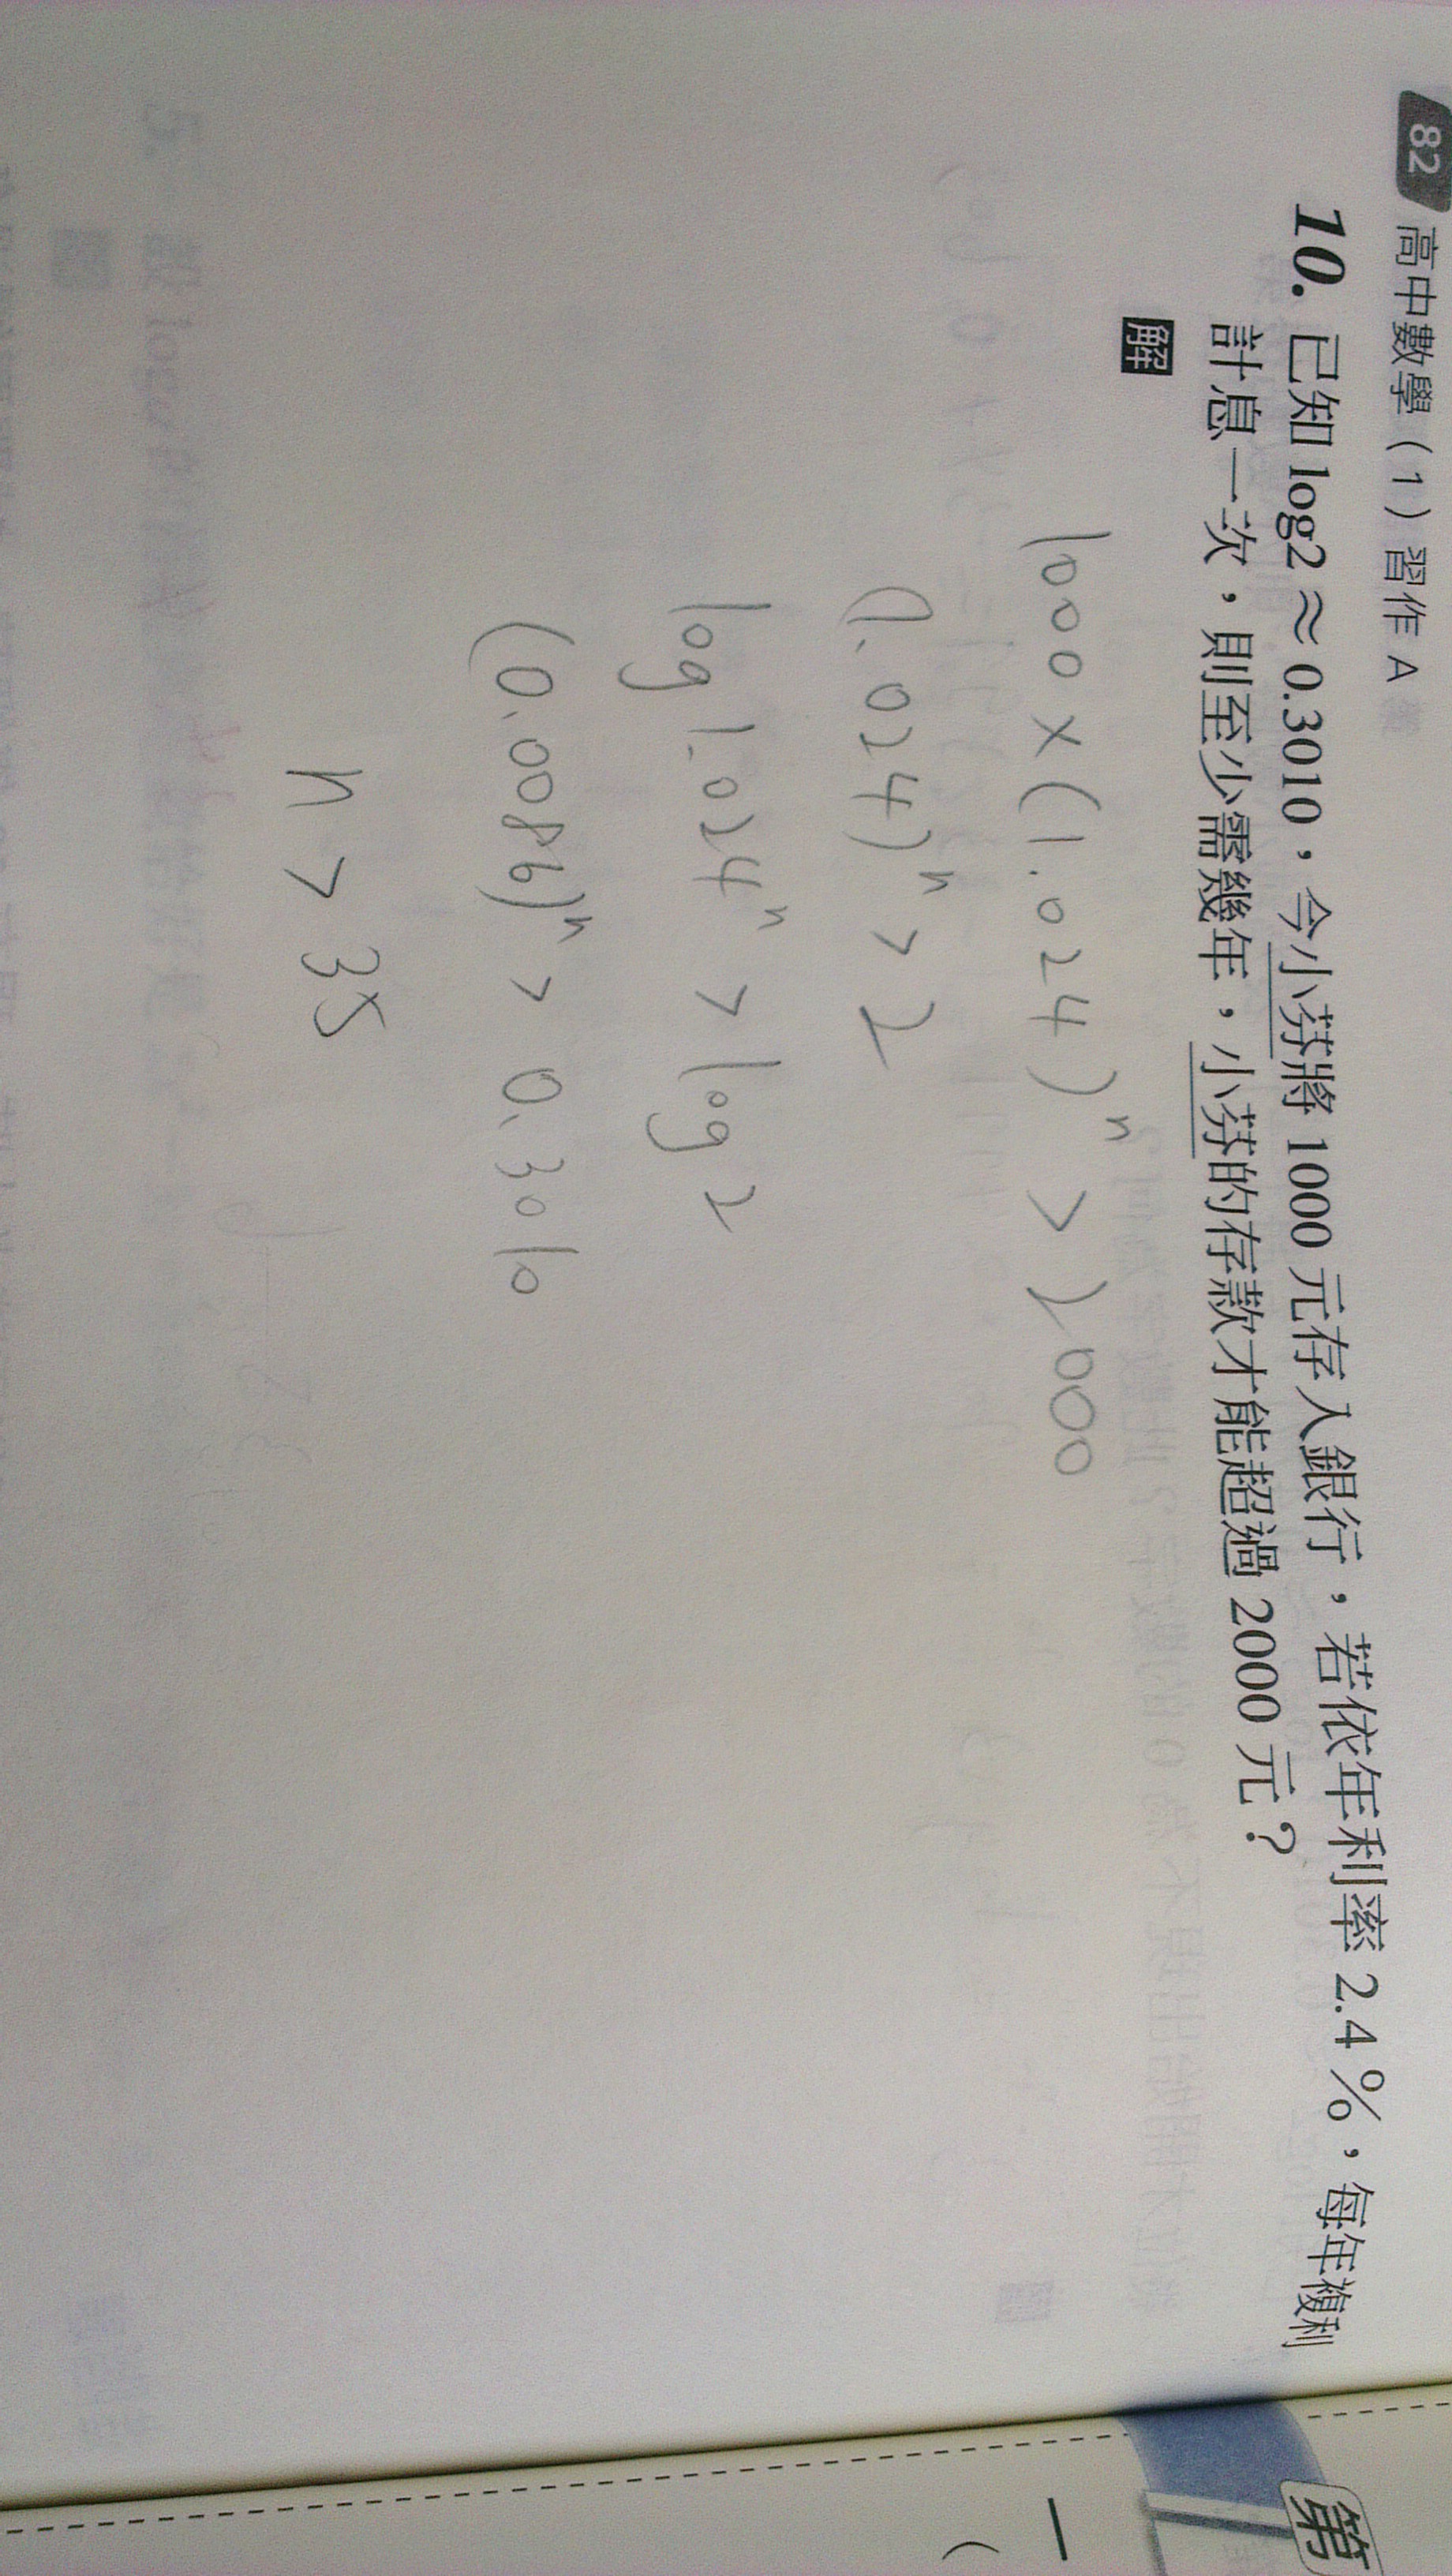 82 高中數學（1）習作 A
10. 已知 log2 ≈ 0.3010，今小芬將 1000 元存入銀行，若依年利率 2.4％，每年複利
計息一次，則至少需幾年，小芬的存款才能超過 2000 元？
解
1000 × (1.024)ⁿ > 2000
(1.024)ⁿ > 2
log 1.024ⁿ > log 2
(0.0086)ⁿ > 0.3010
n > 35
第
一
（